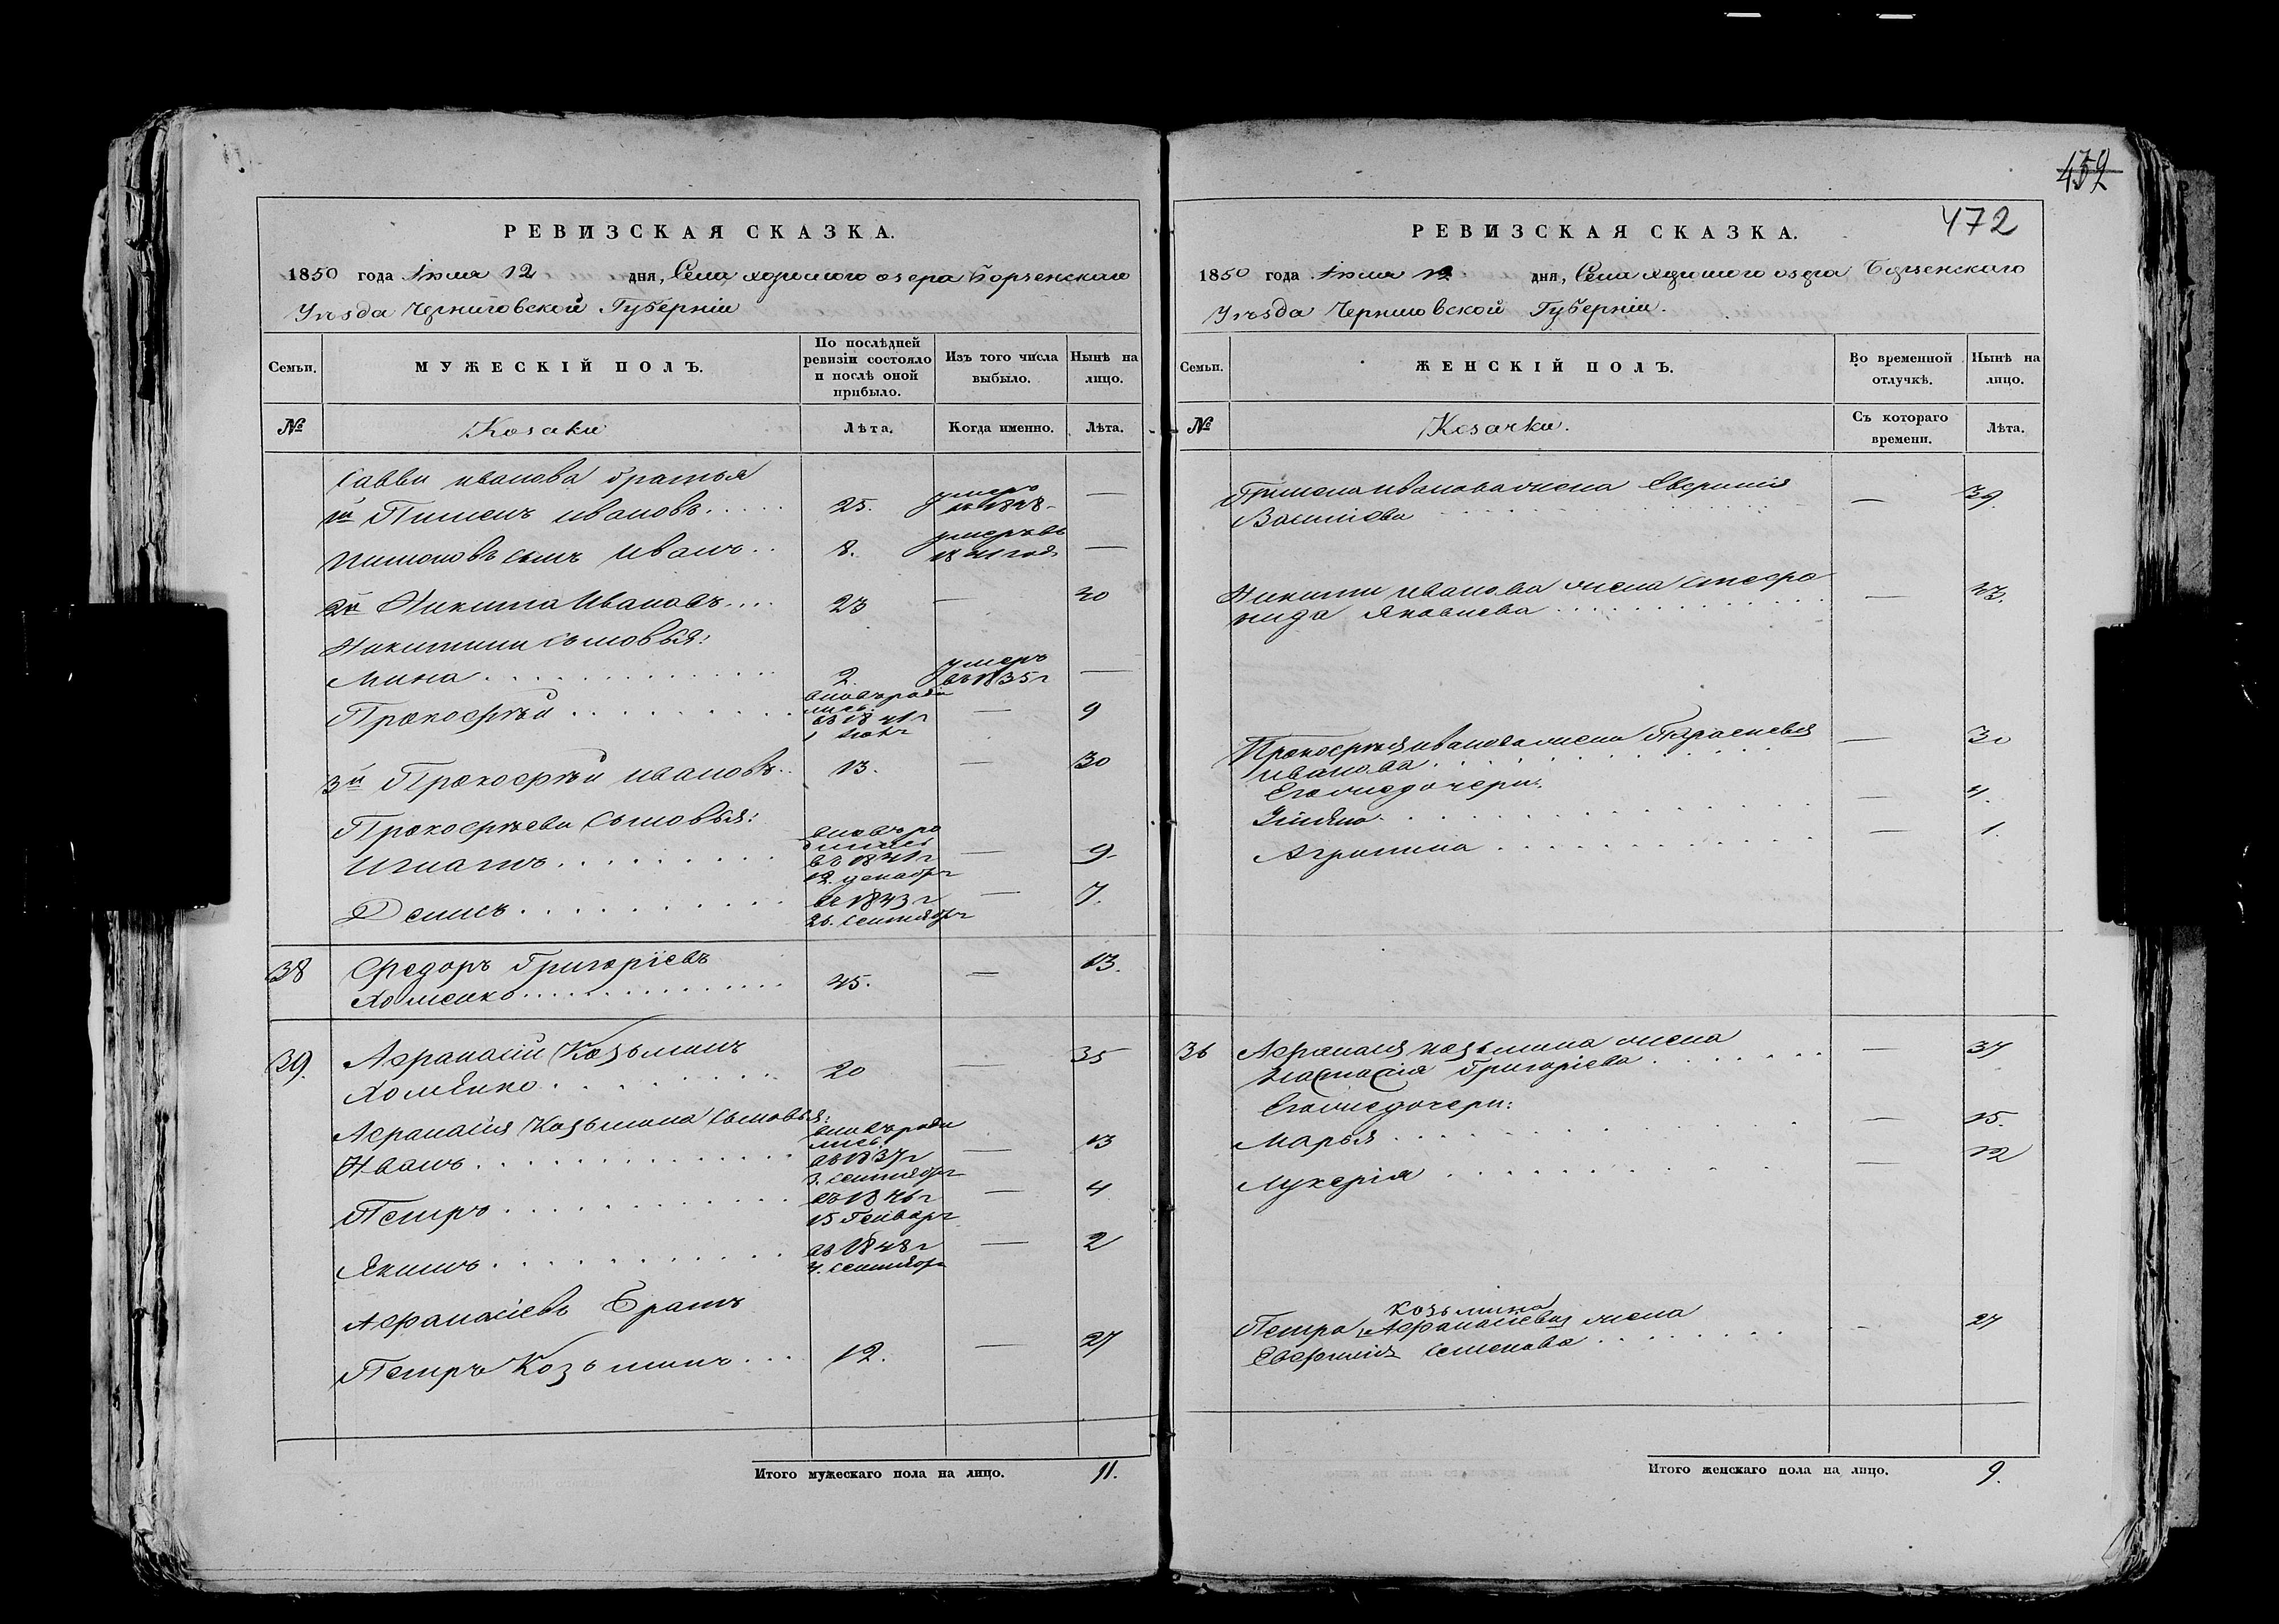 452
472
РЕВИЗСКАЯ СКАЗКА.
1850 года Іюля 12 дня, Села хорошого озера Борзенскаго
Уѣзда Черниговской Губерніи
Семьи. МУЖЕСКІЙ ПОЛЪ. По послѣдней ревизіи состояло и послѣ оной прибыло. Изъ того числа выбыло. Нынѣ на лицо.
№ Козаки Лѣта. Когда именно. Лѣта.
Саввы иванова братья
1й Пименъ ивановъ..... 25. умеръ въ 1848 —
Пименовъ сынъ Иванъ.. 8. умеръ въ 1841 годѣ —
2й Никита Ивановъ.... 23 — 40
Никитины сыновья:
Мина 2. умеръ въ 1835 г —
Прокофѣй вновь роди
лись:
въ 1841 г — 9
3й Прокофѣй ивановъ.. 13. — 30
Прокофѣевы сыновья:
Игнатъ вновь ро
дились
въ 1841 г — 9.
12. декабр
Денисъ въ 1843 г — 7.
26. сентября
38 Федоръ Григоріевъ
Хоменко 45. — 13.
39. Афанасій Козьминъ
Хоменко 20 — 35
Афанасія Козьмина сыновья:
Иванъ вновь роди
лись:
въ 1837 г — 13
3. сентября
Петръ въ 1846 г — 4
15 Генваря
Якимъ въ 1848 г — 2
4. сентября
Афанасіевъ Братъ
Петръ Козьминъ... 12. — 27
Итого мужескаго пола на лицо. 11.
РЕВИЗСКАЯ СКАЗКА.
1850 года Іюля 12 дня, Села хорошого озера Борзенскаго
Уѣзда Черниговской Губерніи.
Семьи. ЖЕНСКІЙ ПОЛЪ. Во временной отлучкѣ. Нынѣ на лицо.
№ Козачки. Съ котораго времени. Лѣта.
Пимена иванова жена Евфимія — 39.
Никиты иванова жена
Яковлева —
Прокофѣя иванова жена
иванова — 30
Его же дочери:
— 4.
Агрипина — 1.
36 Афанасія козьмина жена — 34
Настасія Григоріева
Его же дочери:
Марья — 15.
Лукерія — 12
козьмина
Петра Афанасіева жена — 24
Евфимія Семенова
Итого женскаго пола на лицо. 9.